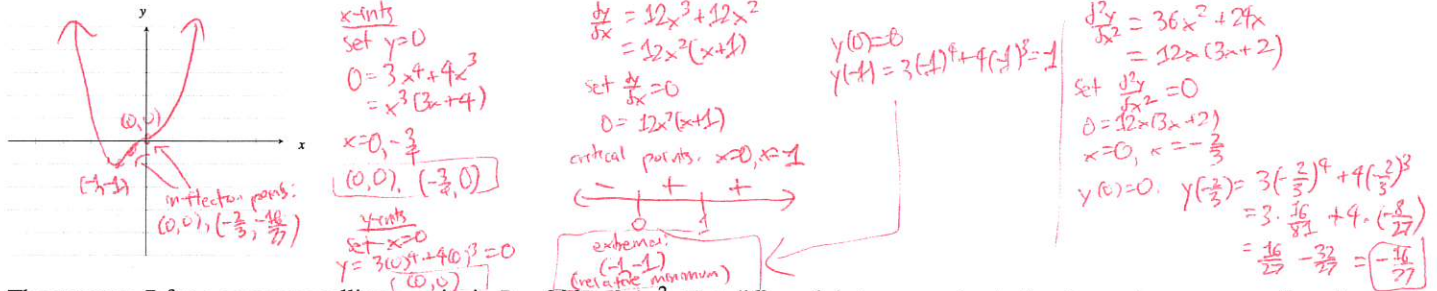 y
x
(0,0)
(-1,-1)
inflection points:
(0,0), (-2/3, -16/27)
x-ints
set y=0
0 = 3x⁴+4x³
= x³(3x+4)
x=0, -3/4
(0,0), (-3/4, 0)
y-ints
set x=0
y = 3(0)⁴+4(0)³ = 0
(0,0)
dy/dx = 12x³+12x²
= 12x²(x+1)
set dy/dx = 0
0 = 12x²(x+1)
critical points: x=0, x=-1
- + +
0 1
extrema:
(-1,-1)
(relative minimum)
y(0)=0
y(-1) = 3(-1)⁴+4(-1)³=-1
d²y/dx² = 36x²+24x
= 12x(3x+2)
set d²y/dx² = 0
0 = 12x(3x+2)
x=0, x=-2/3
y(0)=0. y(-2/3) = 3(-2/3)⁴+4(-2/3)³
= 3·16/81 + 4·(-8/27)
= 16/27 - 32/27 = -16/27